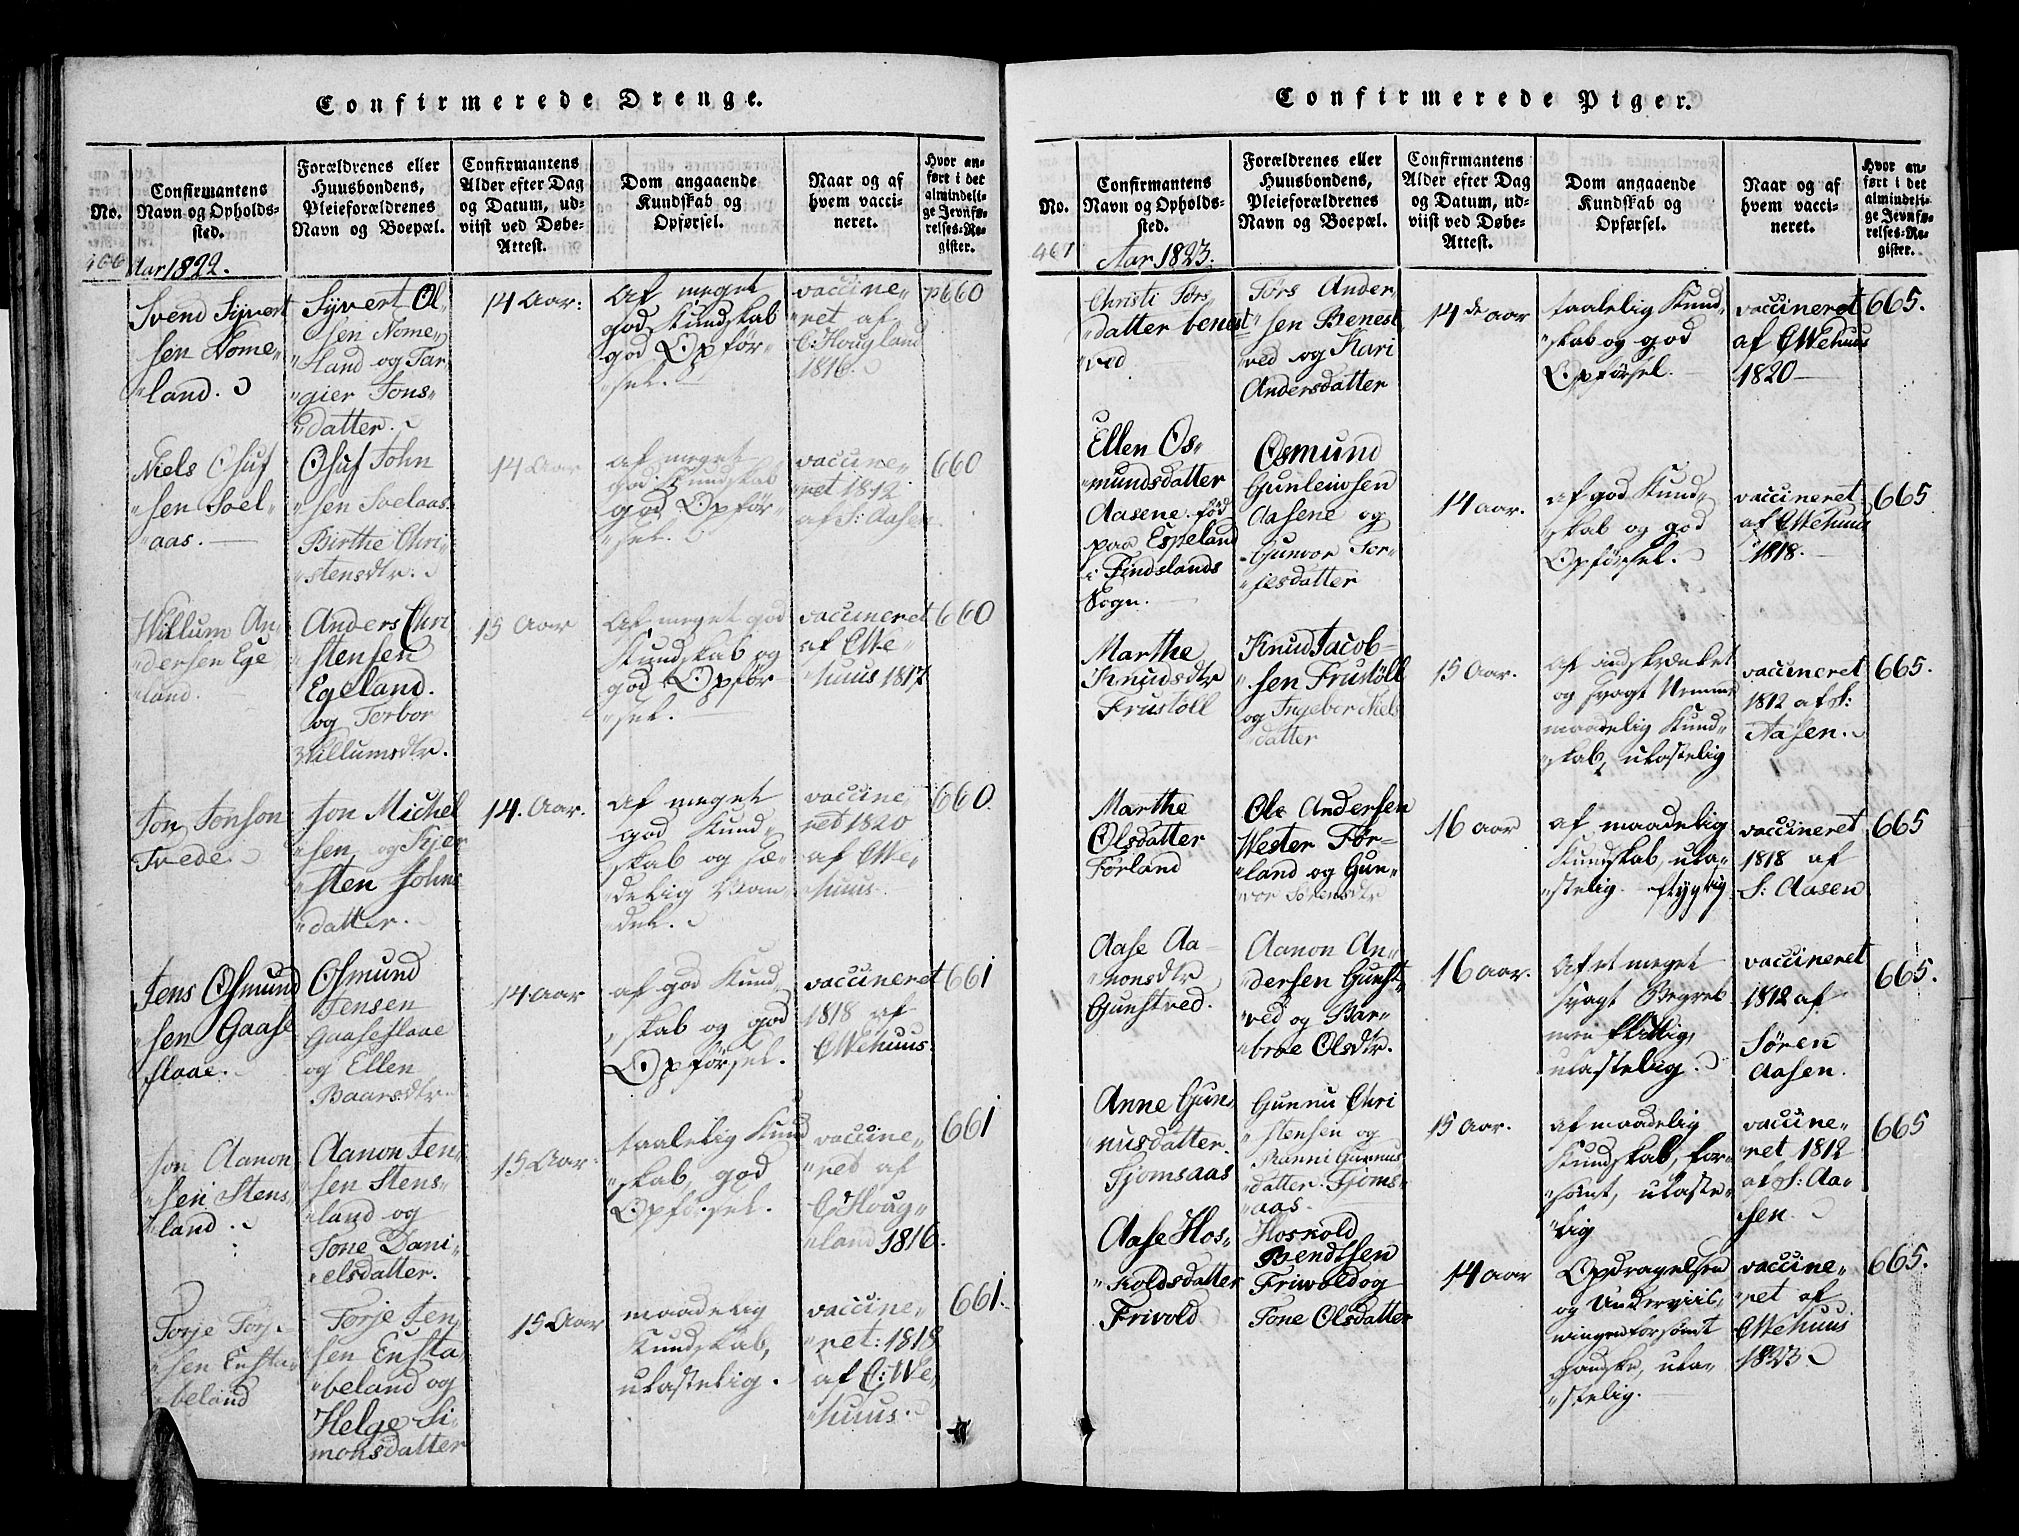 Confirmerede Drenge.
No.
Confirmantens
Navn og Opholds-
sted.
Forældrenes eller
Huusbondens,
Pleieforældrenes
Navn og Boepæl.
Confirmantens
Alder efter Dag
og Datum, ud-
viist ved Døbe-
Attest.
Dom angaaende
Kundskab og
Opførsel.
Naar og af
hvem vacci-
neret.
Hvor an-
ført i det
almindeli-
ge Jevnfø-
relses-Re-
gister.
466
Aar 1822.
Svend Syvert
"sen Nome"
"land.
Syvert Ol"
"sen Nome"
"land og Tar"
"gier Tons"
"datter.
14 Aar.
Af meget
god Kundskab
god Opfør"
"sel.
vaccine"
"ret af
C: Hougland
1816.
p660
Niels Osuf
"sen Soel"
"aas.
Osuf John
"sen Soelaas.
Birthe Chri"
"stensdtr.
14 Aar
af meget
god Kundskab
god Opfør"
"sel.
vaccine"
"ret 1812
af S: Aasen.
660
Willum An"
"dersen Ege
"land.
Anders Chri
"stensen
Egeland.
og Torbor
Willumsdtr.
15 Aar
Af meget god
Kundskab og
god Opfør
"sel.
vaccineret
af C We"
"huus 1817
660
Jon Jonson
Tvede.
Jon Michel
"sen og Kjer
"sten Johns
"datter.
14. Aar.
af meget
god Kund"
"skab og sæ"
"delig Van"
"del.
vaccine"
"ret 1820
af C We"
"huus.
660.
Jens Osmund
"sen Gaase
flaae.
Osmund
Jensen
Gaaseflaae
og Ellen
Baarsdtr.
14 Aar
af god Kund"
"skab og god
Opførsel.
vaccineret
1818 af
C Wehuus.
661
Jon Aanon
"sen Stens"
"land.
Aanon Jen"
"sen Stens"
"land og
Tone Dani"
"elsdatter.
15 Aar.
taalelig Kund
"skab, god
Opførsel.
vaccine"
"ret af
C: Houg"
"land 1816.
661
Torje Torje
"sen Ensta"
"beland
Torje Jen"
"sen Ensta"
"beland og
Helge Si"
monsdatter
15 Aar
maadelig
Kundskab,
ulastelig.
vaccine"
"ret: 1818
af C: We"
"huus.
661.
Confirmerede Piger.
No.
Confirmantens
Navn og Opholds-
sted.
Forældrenes eller
Huusbondens,
Pleieforældrenes
Navn og Boepæl.
Confirmantens
Alder efter Dag
og Datum, ud-
viist ved Døbe-
Attest.
Dom angaaende
Kundskab og
Opførsel.
Naar og af
hvem vacci-
neret.
Hvor an-
ført i det
almindeli-
ge Jevnfø-
relses-Re-
gister.
467
Aar 1823.
Christi Tørs"
"datter benest
"ved
Tørs Ander"
"sen Benest
"ved og Kari
Andersdatter
14 de aar
taalelig Kund"
"skab og god
Opførsel.
vaccineret
af C Wehuus
1820
665.
Ellen Os"
"mundsdatter
Aasene. fød
paa Espeland
i Findslands
Sogn.
Osmund
Gunleivsen
Aasene og
Gunvor Tor"
"jesdatter
14 aar.
af god Kund"
"skab og god
Opførsel.
vaccineret
af C Wehuus
1818.
665
Marthe
Knudsdtr
Frustöll
Knud Jacob-
"sen Frustöll
og Ingebor Niels
"datter
15 Aar.
af indskrænket
og svagt Nemme
maadelig Kund"
"skab, ulastelig
vaccineret
1812 af S:
Aasen.
665.
Marthe
Olsdatter
Förland
Ole Andersen
Wester För-
"land og Gun"
"vor Sörensdtr
16 aar
af maadelig
Kundskab, ula"
"stelig.
vaccineret
1818 af
S: Aasen
665
Aase Aa"
"nonsdtr
Gunstved.
Aanon An"
"dersen Gunst"
"ved og Bar"
"broe Olsdtr.
16 aar.
Af et meget
svagt Begreb
men flittig,
ulastelig.
vaccineret
1812 af
Søren
Aasen.
665.
Anne Gun"
"nusdatter.
Fjomsaas
Gunnu Chri
"stensen og
Ranni Gunnus
"datter. Fjoms"
"aas.
15 Aar.
af maadelig
Kundskab, for"
"sømt, ulaste"
"lig
vaccine"
"ret 1812
af S: Aa"
"sen.
665
Aase Hos"
"koldsdatter
Frivold
Hoskold
Bendtsen
Friwold og
Tone Olsdatter
14 aar
Opdragelsen
og Underviis"
"ningen forsømt
ganske, ula"
"stelig.
vaccine"
"ret af
C Wehuus
1823
665.